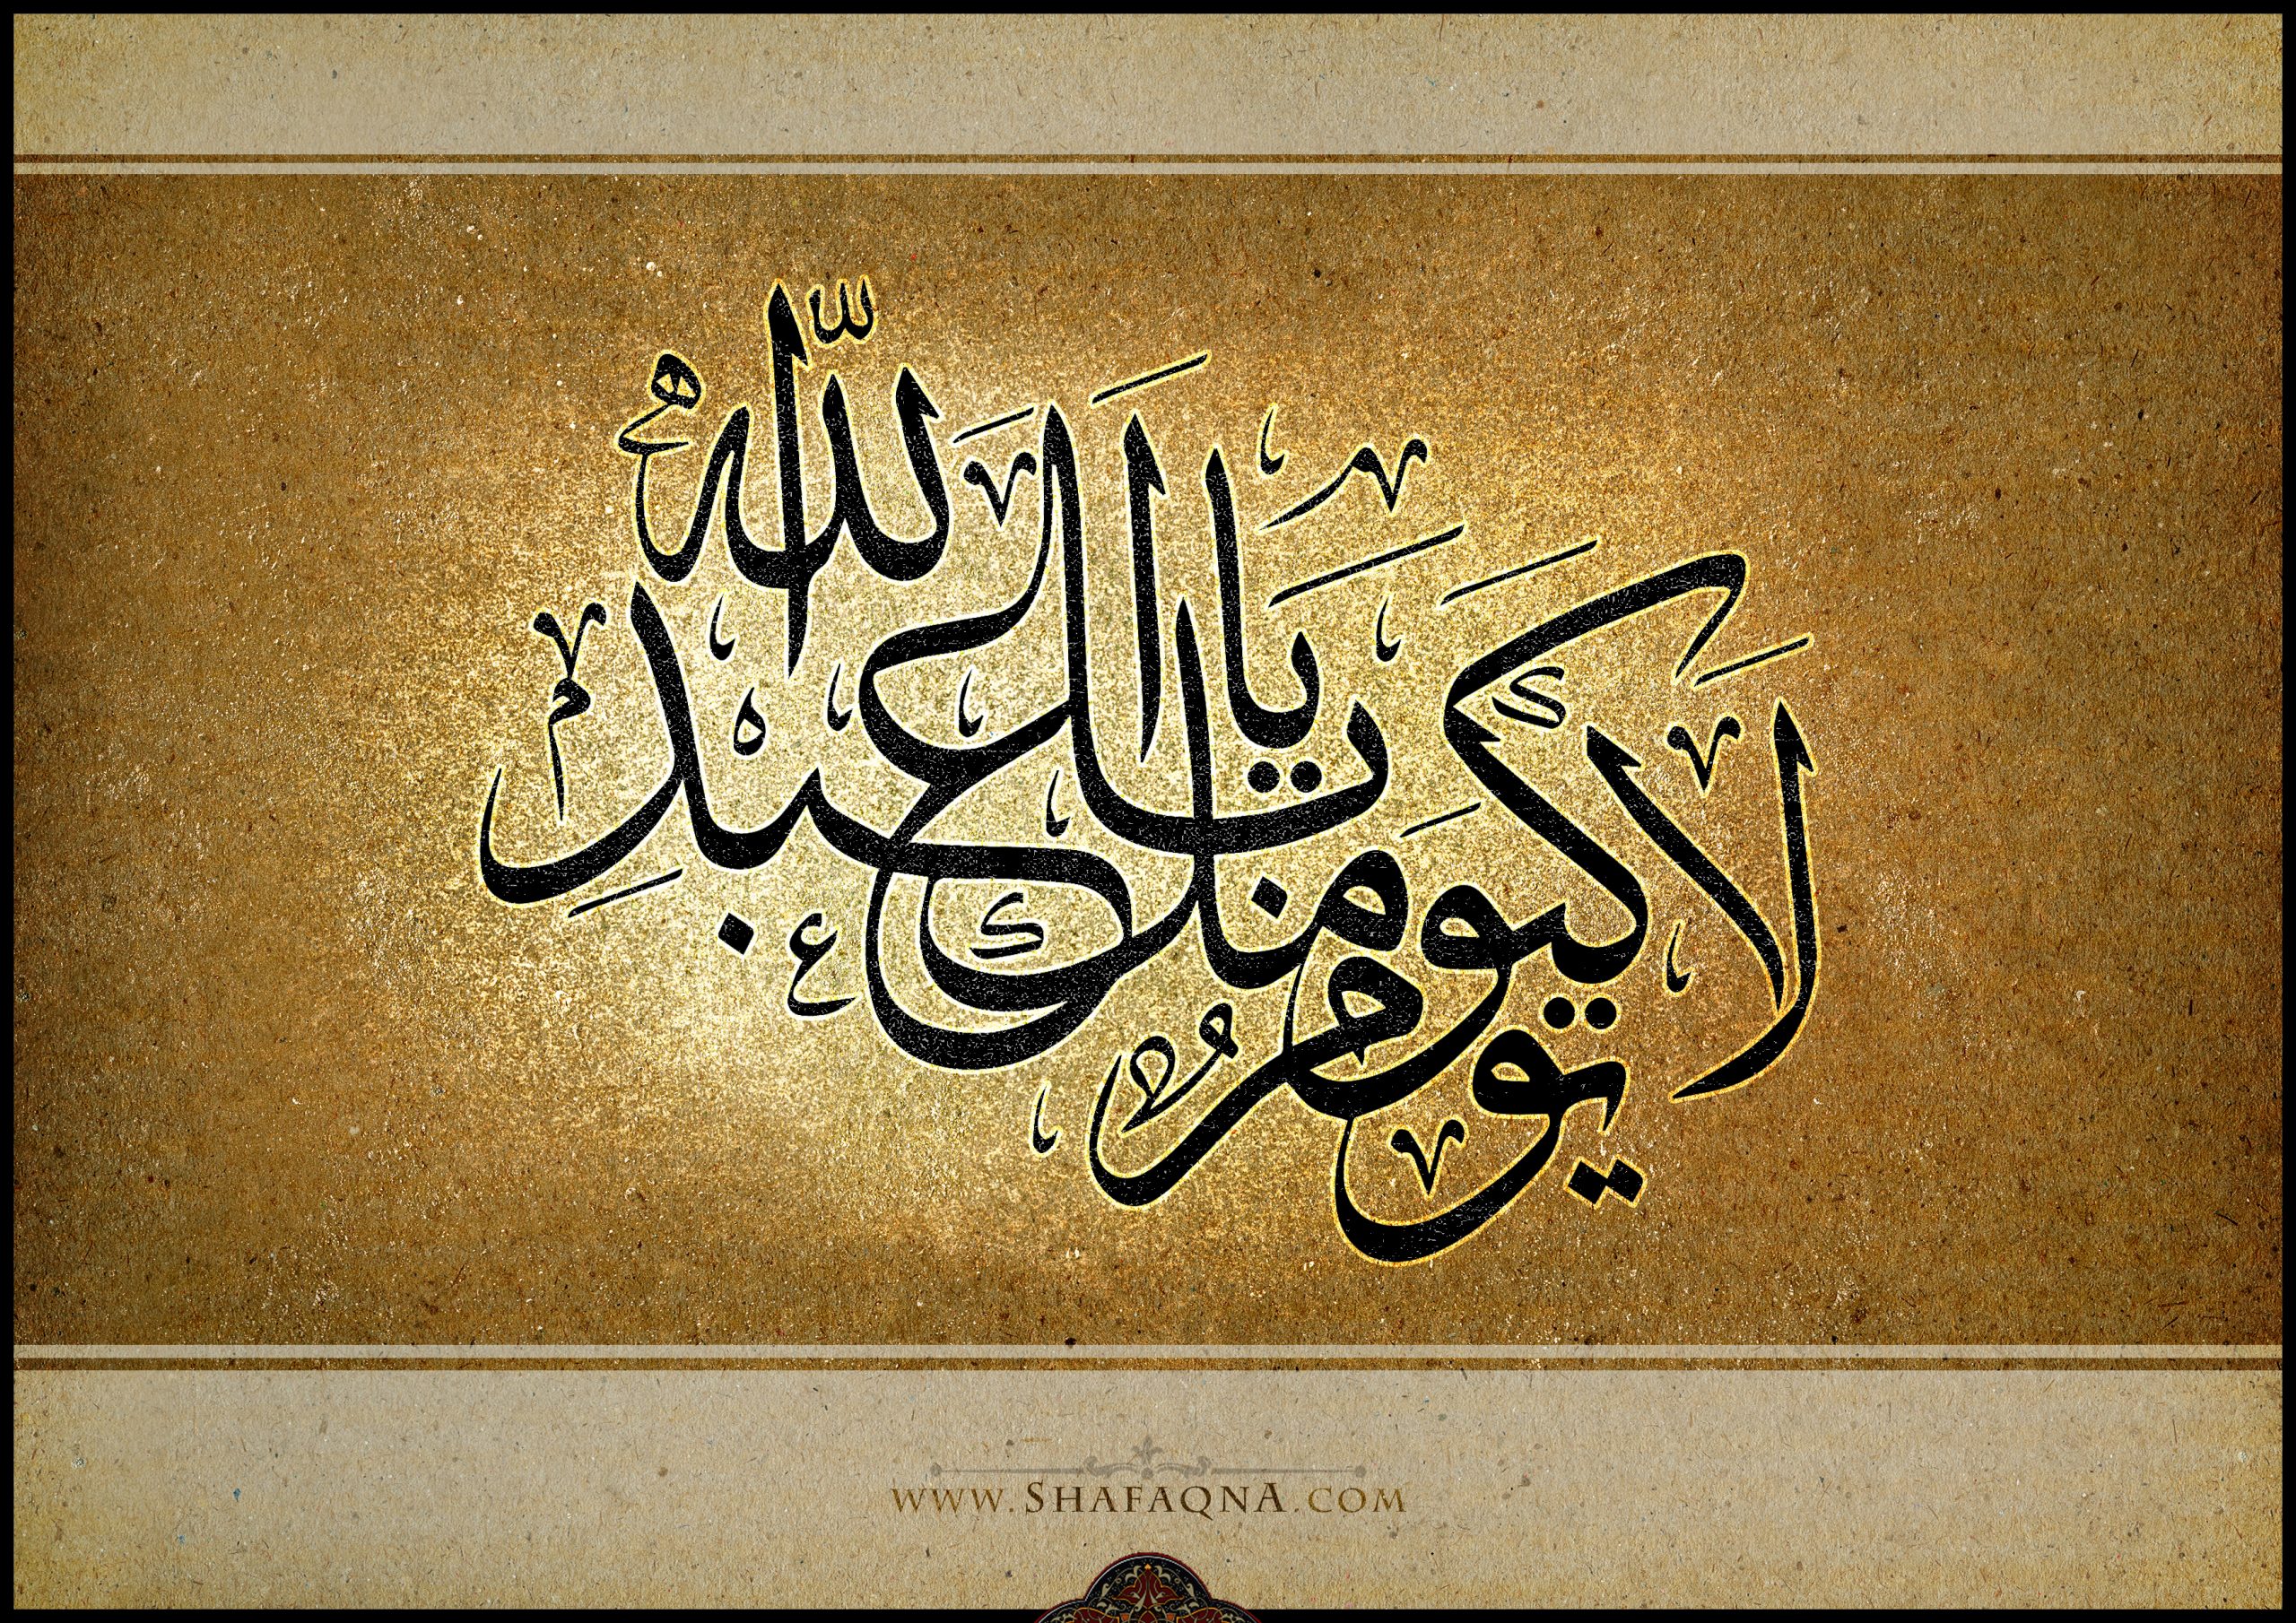 لَا يَوْمَ كَيَوْمِكَ يَا أَبَا عَبْدِ اللّٰهِ
www.Shafaqna.com